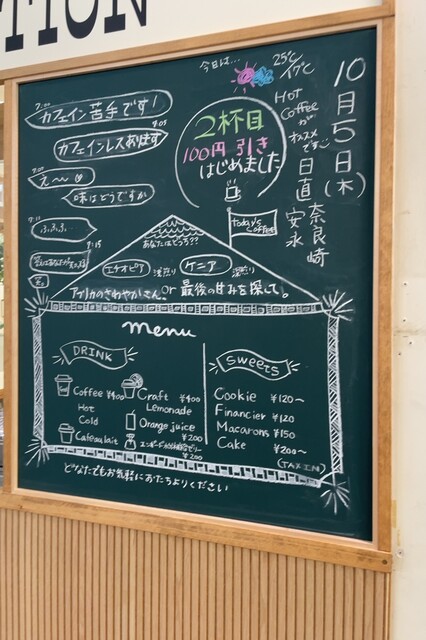 TION
10月5日(木)
日直 奈良崎
安永
今日は…
25℃/17℃
Hot
Coffee
が
オススメ
です
2杯目
100円引き
はじめました
7:00
カフェイン苦手です!
7:05
カフェインレスあります
7:07
え〜
味はどうですか
7:11
ふふふ…
7:15
today's
coffee
あなたはどっち??
エチオピア 浅煎り ケニア 深煎り
アフリカのさわやかさん。 or 最後の甘みを探して。
menu
DRINK
Coffee ¥400
Hot
Cold
Cafe au lait
Craft ¥400
Lemonade
Orange juice
¥200
¥200
Sweets
Cookie ¥120〜
Financier ¥120
Macarons ¥150
Cake ¥200〜
(TAX IN)
どなたでもお気軽にお立ちよりください